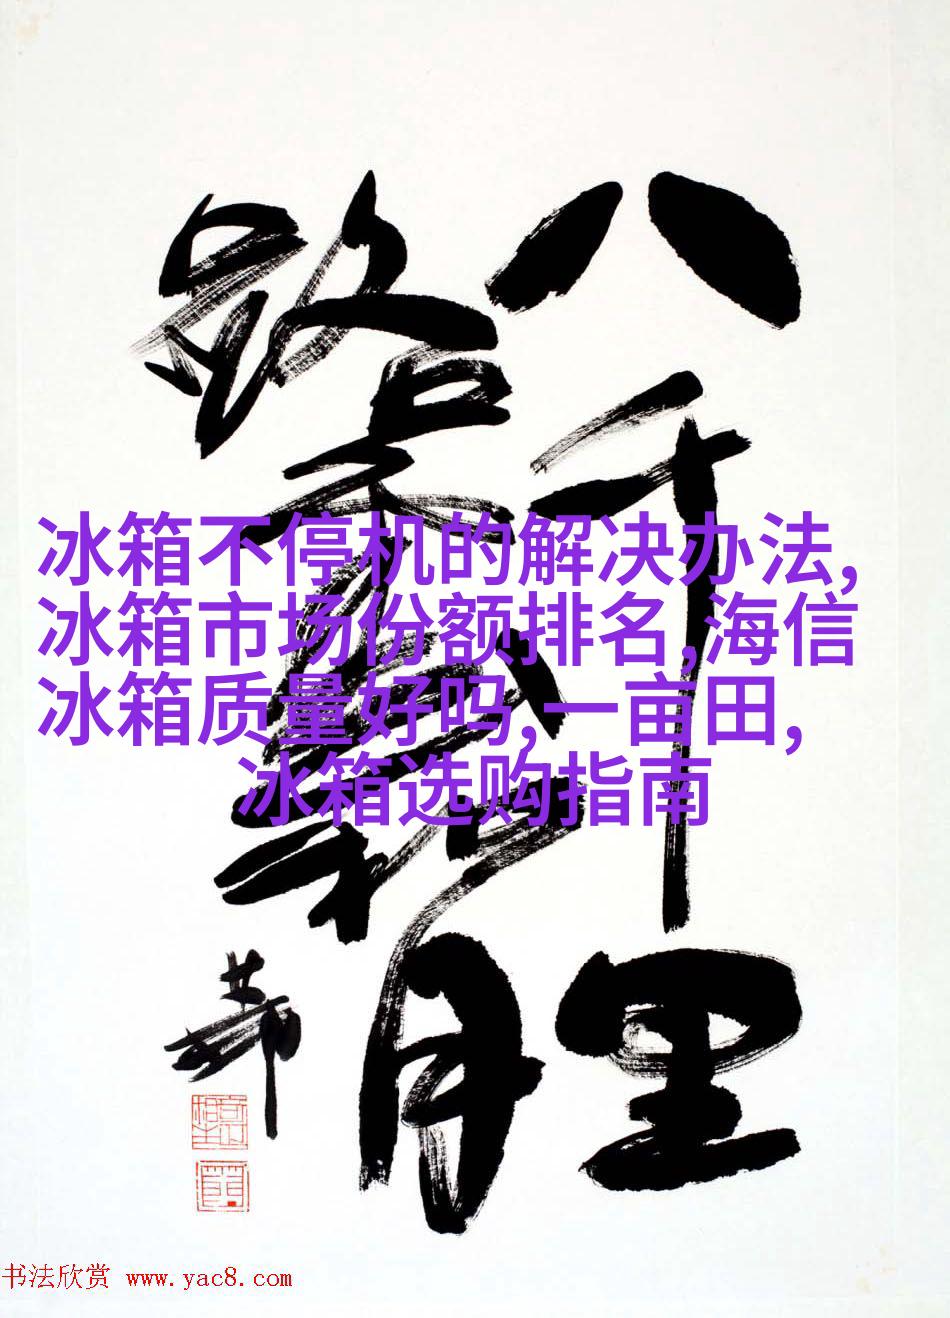 八千里
路云和月
冰箱不停机的解决办法,
冰箱市场份额排名,海信
冰箱质量好吗,一亩田,
冰箱选购指南
书法欣赏 www.yac8.com